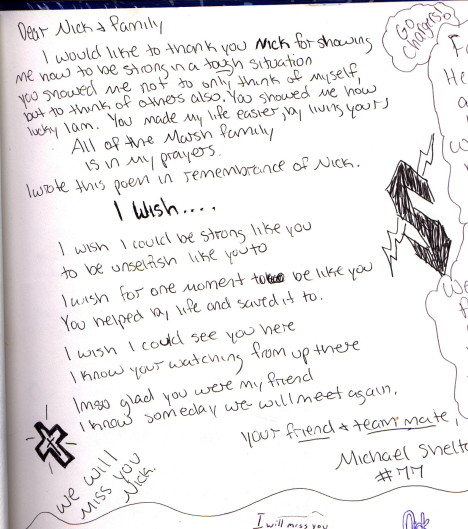 Dear Nick & Family
I would like to thank you Nick for showing
me how to be strong in a tough situation
you showed me not to only think of myself,
but to think of others also. You showed me how
lucky I am. You made my life easier by living yours
All of the Marsh family
is in my prayers.
I wrote this poem in remembrance of Nick.
I Wish....
I wish I could be strong like you
to be unselfish like you to
I wish for one moment to be like you
You helped my life and saved it to.
I wish I could see you here
I know your watching from up there
Imso glad you were my friend
I know someday we will meet again.
your friend & team mate,
Michael
#77
We will
miss you
Nick.
Go
Chargers!
S
I will miss you